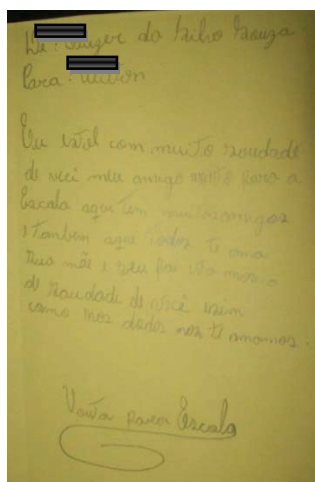 De: da Silva Souza.
Para:
Eu estol com muito saudade
de você meu amigo volto para a
Escola aqui tem muitos amigos
i tanbem aqui todos ti ama
seu mãe i seu pai
de saudade de você
como nos todos nos ti amamos.
Volta para Escola